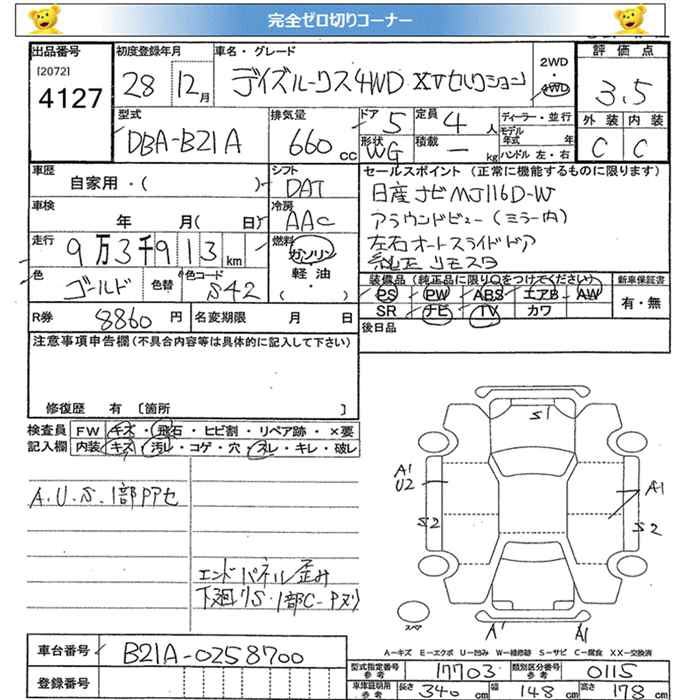 完全ゼロ切りコーナー
出品番号
[2072]
4127
初度登録年月
28 12月
車名・グレード
デイズルークス4WD XVセレクション
2WD
・
4WD
評価点
3.5
外装 内装
C C
型式
DBA-B21A
排気量
660cc
ドア 5
形状 WG
定員 4人
積載 ー kg
ディーラー・並行
モデル年式 年
ハンドル 左・右
車歴
自家用・( )
シフト
DAT
車検
年 月( 日)
冷房
AAC
走行
9万3千913km
燃料
ガソリン
軽油
( ・ )
色
ゴールド
色替
色コード
S42
セールスポイント(正常に機能するものに限ります)
日産ナビ MJ116D-W
アラウンドビュー(ミラー内)
左右オートスライドドア
純正リモスタ
装備品(純正品に限り○をつけてください)
PS PW ABS エアB AW
SR ナビ TV カワ
新車保証書
有・無
R券 8860円
名変期限 月 日
後日品
注意事項申告欄(不具合内容等は具体的に記入して下さい)
修復歴 有〔箇所 〕
検査員記入欄
FW キズ・飛石・ヒビ割・リペア跡・×要
内装 キズ・汚レ・コゲ・穴・スレ・キレ・破レ
A.U.S.1部Pアセ
エンドパネル歪み
下廻りS・1部C-Pヌリ
S1
A1
U2
A1
S2
S2
スペア
A1
A1
A-キズ E-エクボ U-凹み W-補修跡 S-サビ C-腐食 XX-交換済
車台番号
B21A-0258700
登録番号
型式指定番号参考
17703
類別区分番号参考
0115
車庫証明用参考
長さ 340cm
幅 148cm
高さ 178cm